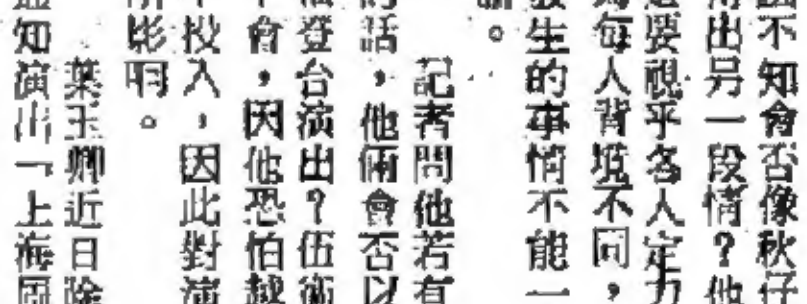 不知會否像秋仔
出另一段情？他
要視乎各人定力
為每人背境不同，
發生的事情不能一
。
記者問他若有
的話，他倆會否以
登台演出？伍衛
會，因他恐怕越
投入，因此對演
影响。
葉玉卿近日除
知演出「上海風